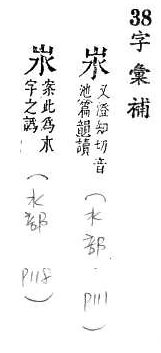 38字彙補
又澄知切音
池篇韻讀
(水部 P111)
案此為
字之譌
(水部 P118)